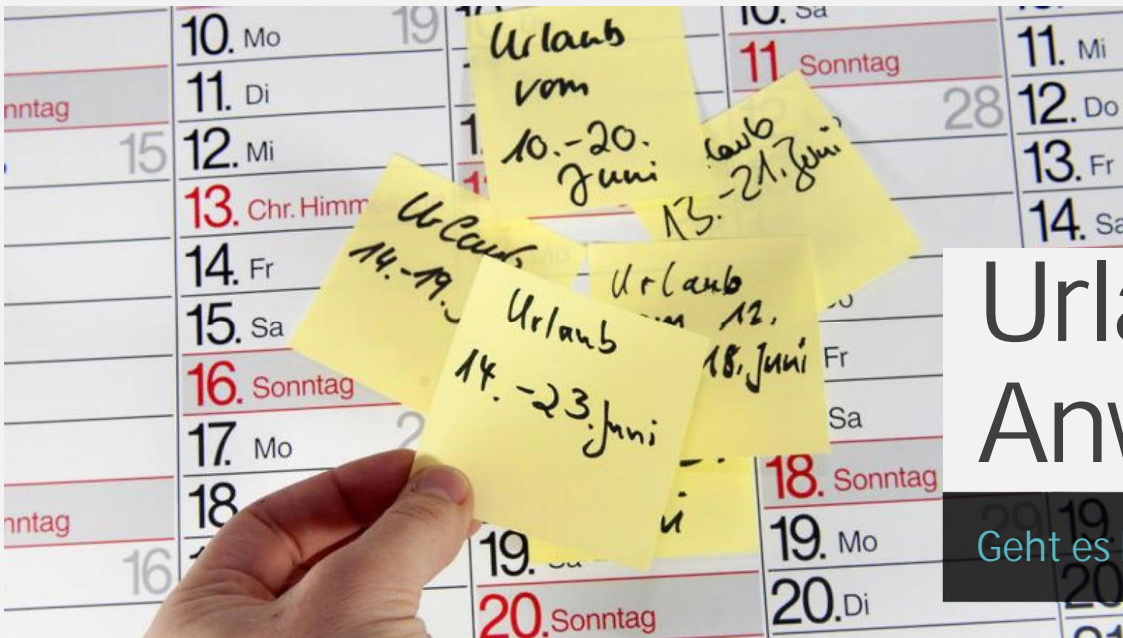 nntag
15
nntag
16
10. Mo 19
11. Di
12. Mi
13. Chr. Himm
14. Fr
15. Sa
16. Sonntag
17. Mo
18.
Urlaub
vom
10.-20.
Juni
13.-21. Juni
Urlaub
14.-19.
Urlaub
12.
18. Juni
Urlaub
14.-23. Juni
19.
20. Sonntag
10. Sa
11. Sonntag
28
Fr
Sa
18. Sonntag
19. Mo 29
20. Di
11. Mi
12. Do
13. Fr
14. Sa
19.
20
Urla
Anw
Geht es